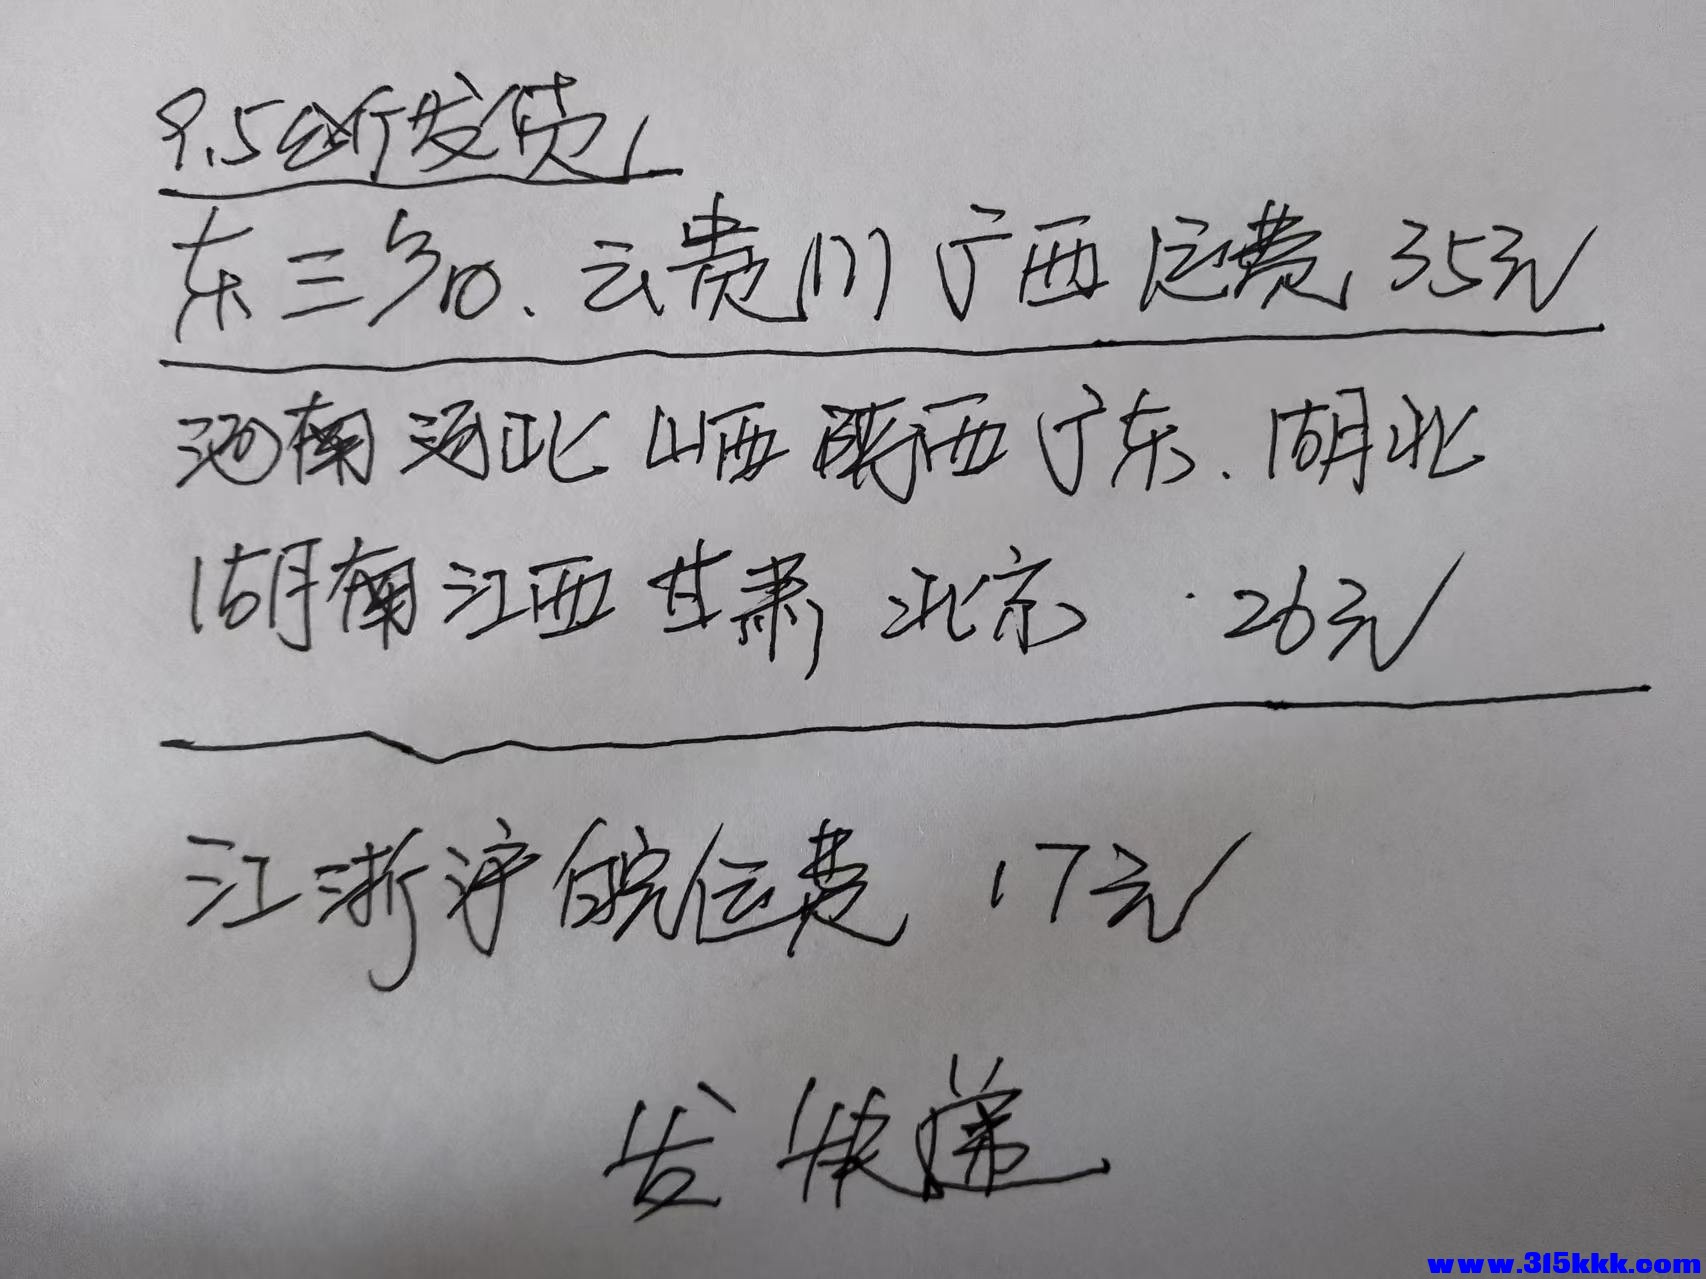 9.5公斤发货
东三省、云贵川广西运费 35元
河南河北山西陕西广东.湖北
湖南江西甘肃 北京 26元
江浙沪皖运费 17元
发快递
www.315kkk.com